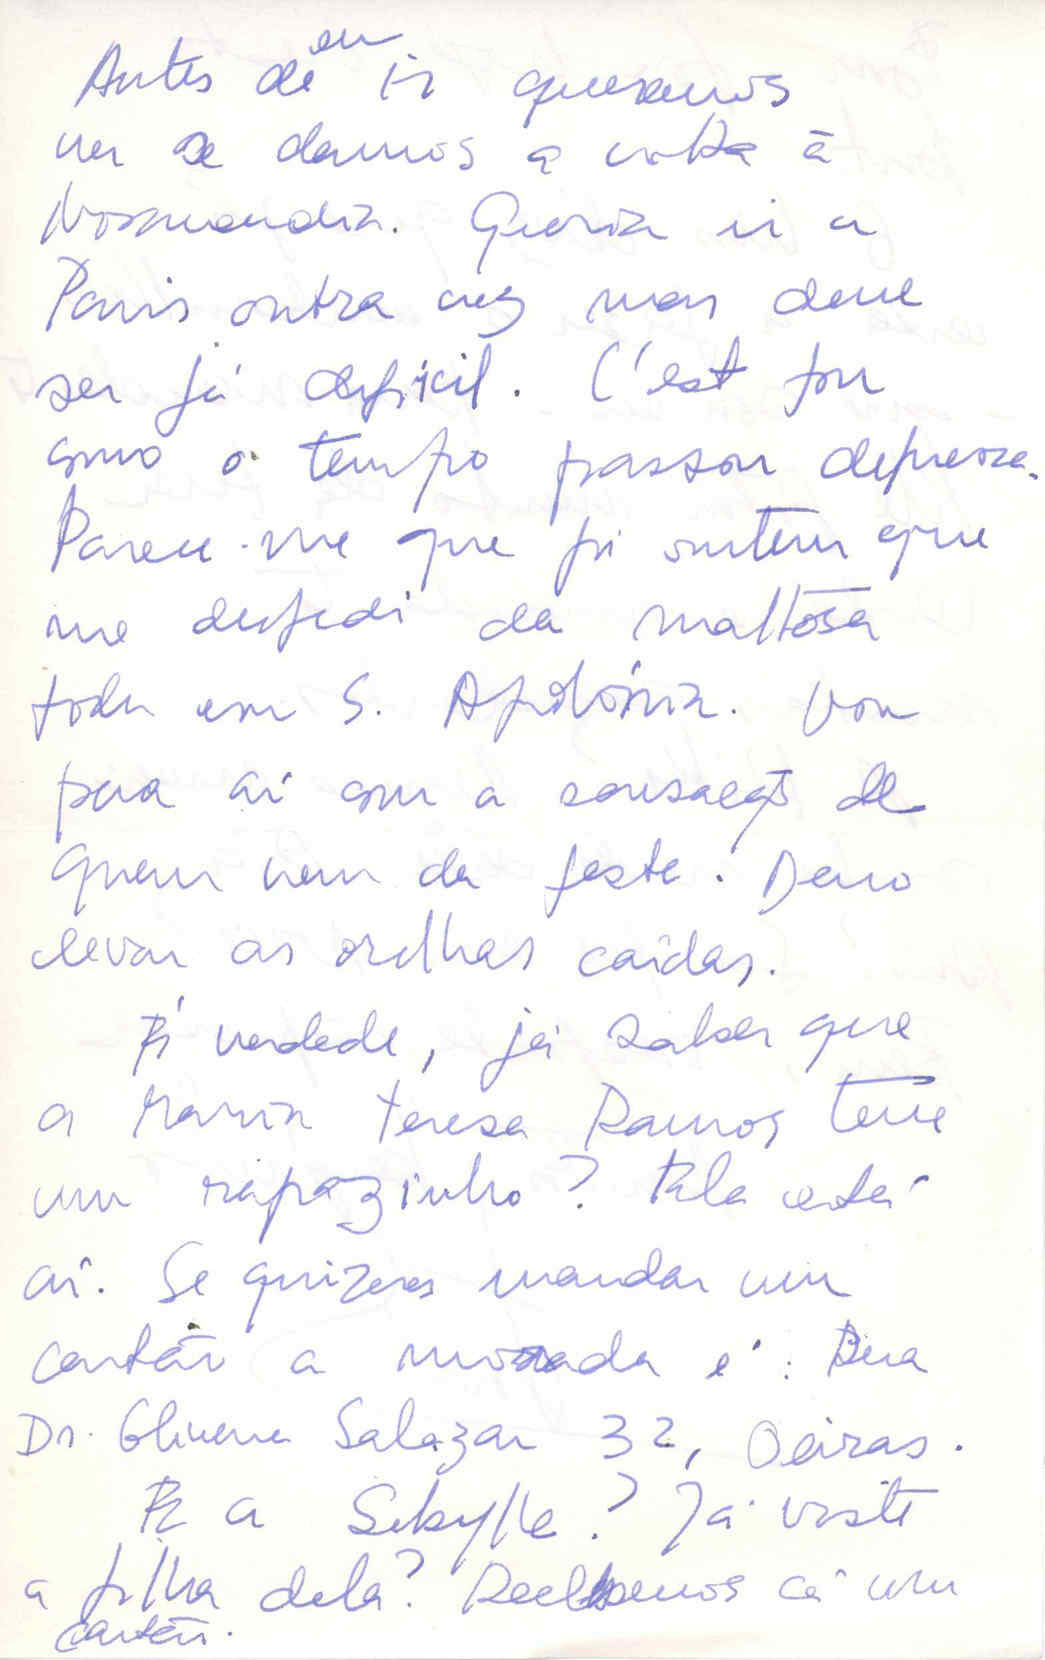 Antes de eu ir queremos
ver se damos a volta à
Normandia. Queria ir a
Paris outra vez mas deve
ser já dificil. C'est fou
como o tempo passou depressa.
Parece-me que foi ontem que
me despedi da maltosa
toda em S. Apolónia. Vou
para aí com a sensação de
quem vem da festa. Devo
levar as orelhas caídas.
É verdade, já sabes que
a Maria Teresa Ramos teve
um rapazinho? Ela está
aí. Se quizeres mandar um
cartão a morada é: Rua
Dr. Oliveira Salazar 32, Oeiras.
E a Sibylle? Já viste
a filha dela? Recebemos cá um
cartão.